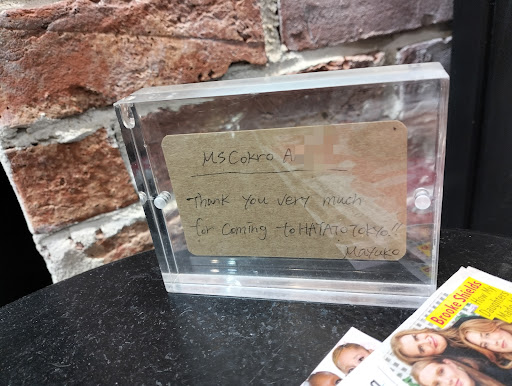 Ms Cokro A
Thank you very much
for coming to HATATO TOKYO!!
Mayuko
Brooke Shields